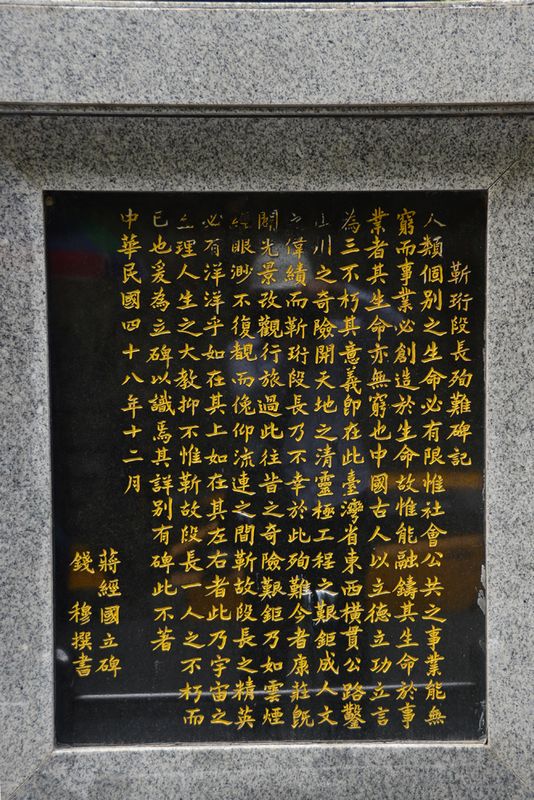 靳珩段長殉難碑記
人類個別之生命必有限惟社會公共之事業能無
窮而事業必創造於生命故惟能融鑄其生命於事
業者其生命亦無窮也中國古人以立德立功立言
為三不朽其意義即在此臺灣省東西橫貫公路鑿
山川之奇險開天地之清靈極工程之艱鉅成人文
之偉績而靳珩段長乃不幸於此殉難今者康莊既
開光景改觀行旅過此往昔之奇險艱鉅乃如雲煙
經眼渺不復覩而俛仰流連之間靳故段長之精英
必有洋洋乎如在其上如在其左右者此乃宇宙之
至理人生之大教抑不惟靳故段長一人之不朽而
已也爰為立碑以識焉其詳別有碑此不著
中華民國四十八年十二月
蔣經國立碑
錢穆撰書